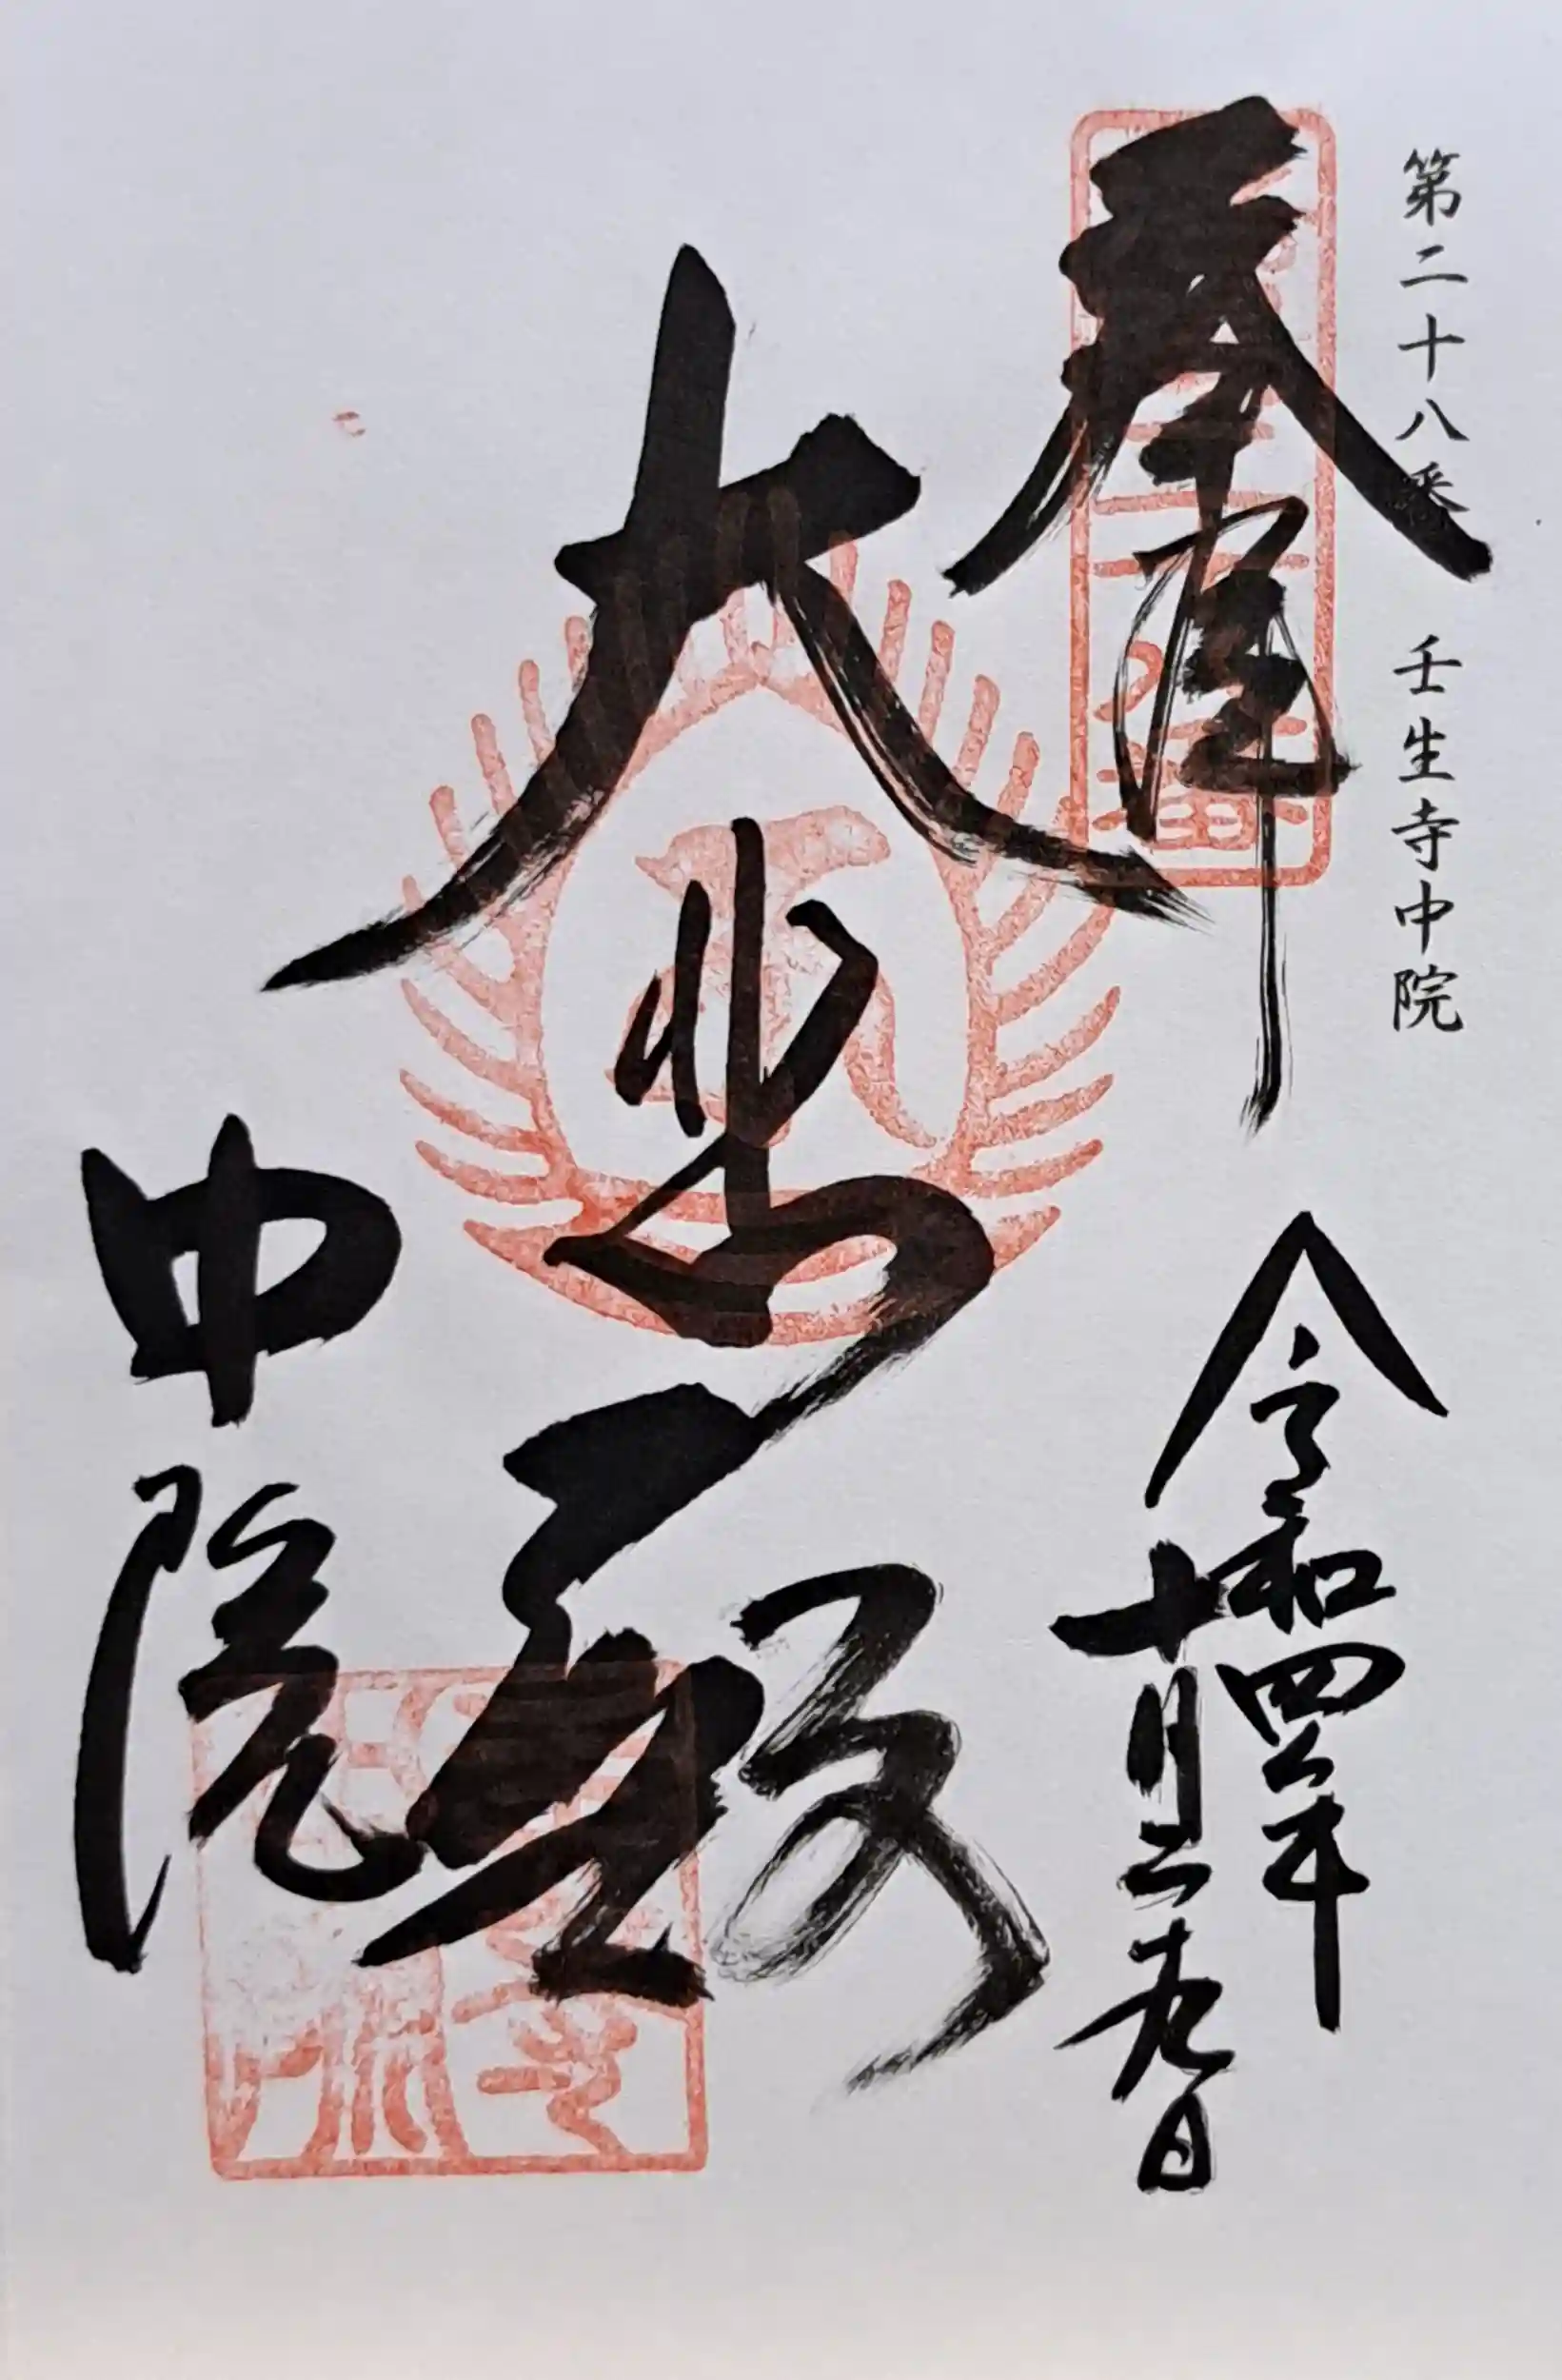 第二十八番 壬生寺中院
奉拝
令和四年
十月二十九日
大悲殿
中院